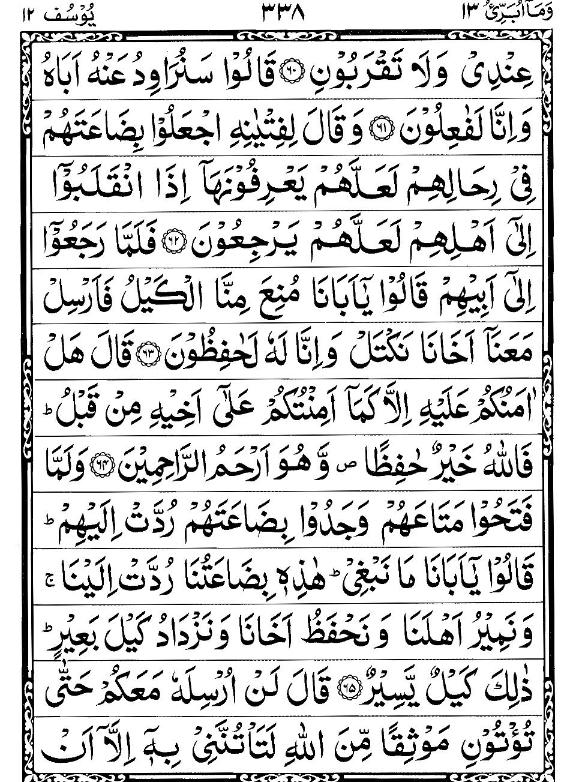 وَمَآ اُبَرِّئُ ١٣ ٣٣٨ يُوْسُف ١٢
عِنْدِىْ وَلَا تَقْرَبُوْنِ ﴿٦٠﴾ قَالُوْا سَنُرَاوِدُ عَنْهُ اَبَاهُ
وَاِنَّا لَفٰعِلُوْنَ ﴿٦١﴾ وَقَالَ لِفِتْيٰنِهِ اجْعَلُوْا بِضَاعَتَهُمْ
فِىْ رِحَالِهِمْ لَعَلَّهُمْ يَعْرِفُوْنَهَآ اِذَا انْقَلَبُوْٓا
اِلٰٓى اَهْلِهِمْ لَعَلَّهُمْ يَرْجِعُوْنَ ﴿٦٢﴾ فَلَمَّا رَجَعُوْٓا
اِلٰٓى اَبِيْهِمْ قَالُوْا يٰٓاَبَانَا مُنِعَ مِنَّا الْكَيْلُ فَاَرْسِلْ
مَعَنَآ اَخَانَا نَكْتَلْ وَاِنَّا لَهٗ لَحٰفِظُوْنَ ﴿٦٣﴾ قَالَ هَلْ
اٰمَنُكُمْ عَلَيْهِ اِلَّا كَمَآ اَمِنْتُكُمْ عَلٰٓى اَخِيْهِ مِنْ قَبْلُ ؕ
فَاللّٰهُ خَيْرٌ حٰفِظًا ص وَّهُوَ اَرْحَمُ الرَّاحِمِيْنَ ﴿٦٤﴾ وَلَمَّا
فَتَحُوْا مَتَاعَهُمْ وَجَدُوْا بِضَاعَتَهُمْ رُدَّتْ اِلَيْهِمْ ؕ
قَالُوْا يٰٓاَبَانَا مَا نَبْغِىْ ؕ هٰذِهٖ بِضَاعَتُنَا رُدَّتْ اِلَيْنَا ۚ
وَنَمِيْرُ اَهْلَنَا وَنَحْفَظُ اَخَانَا وَنَزْدَادُ كَيْلَ بَعِيْرٍ ؕ
ذٰلِكَ كَيْلٌ يَّسِيْرٌ ﴿٦٥﴾ قَالَ لَنْ اُرْسِلَهٗ مَعَكُمْ حَتّٰى
تُؤْتُوْنِ مَوْثِقًا مِّنَ اللّٰهِ لَتَاْتُنَّنِىْ بِهٖٓ اِلَّآ اَنْ